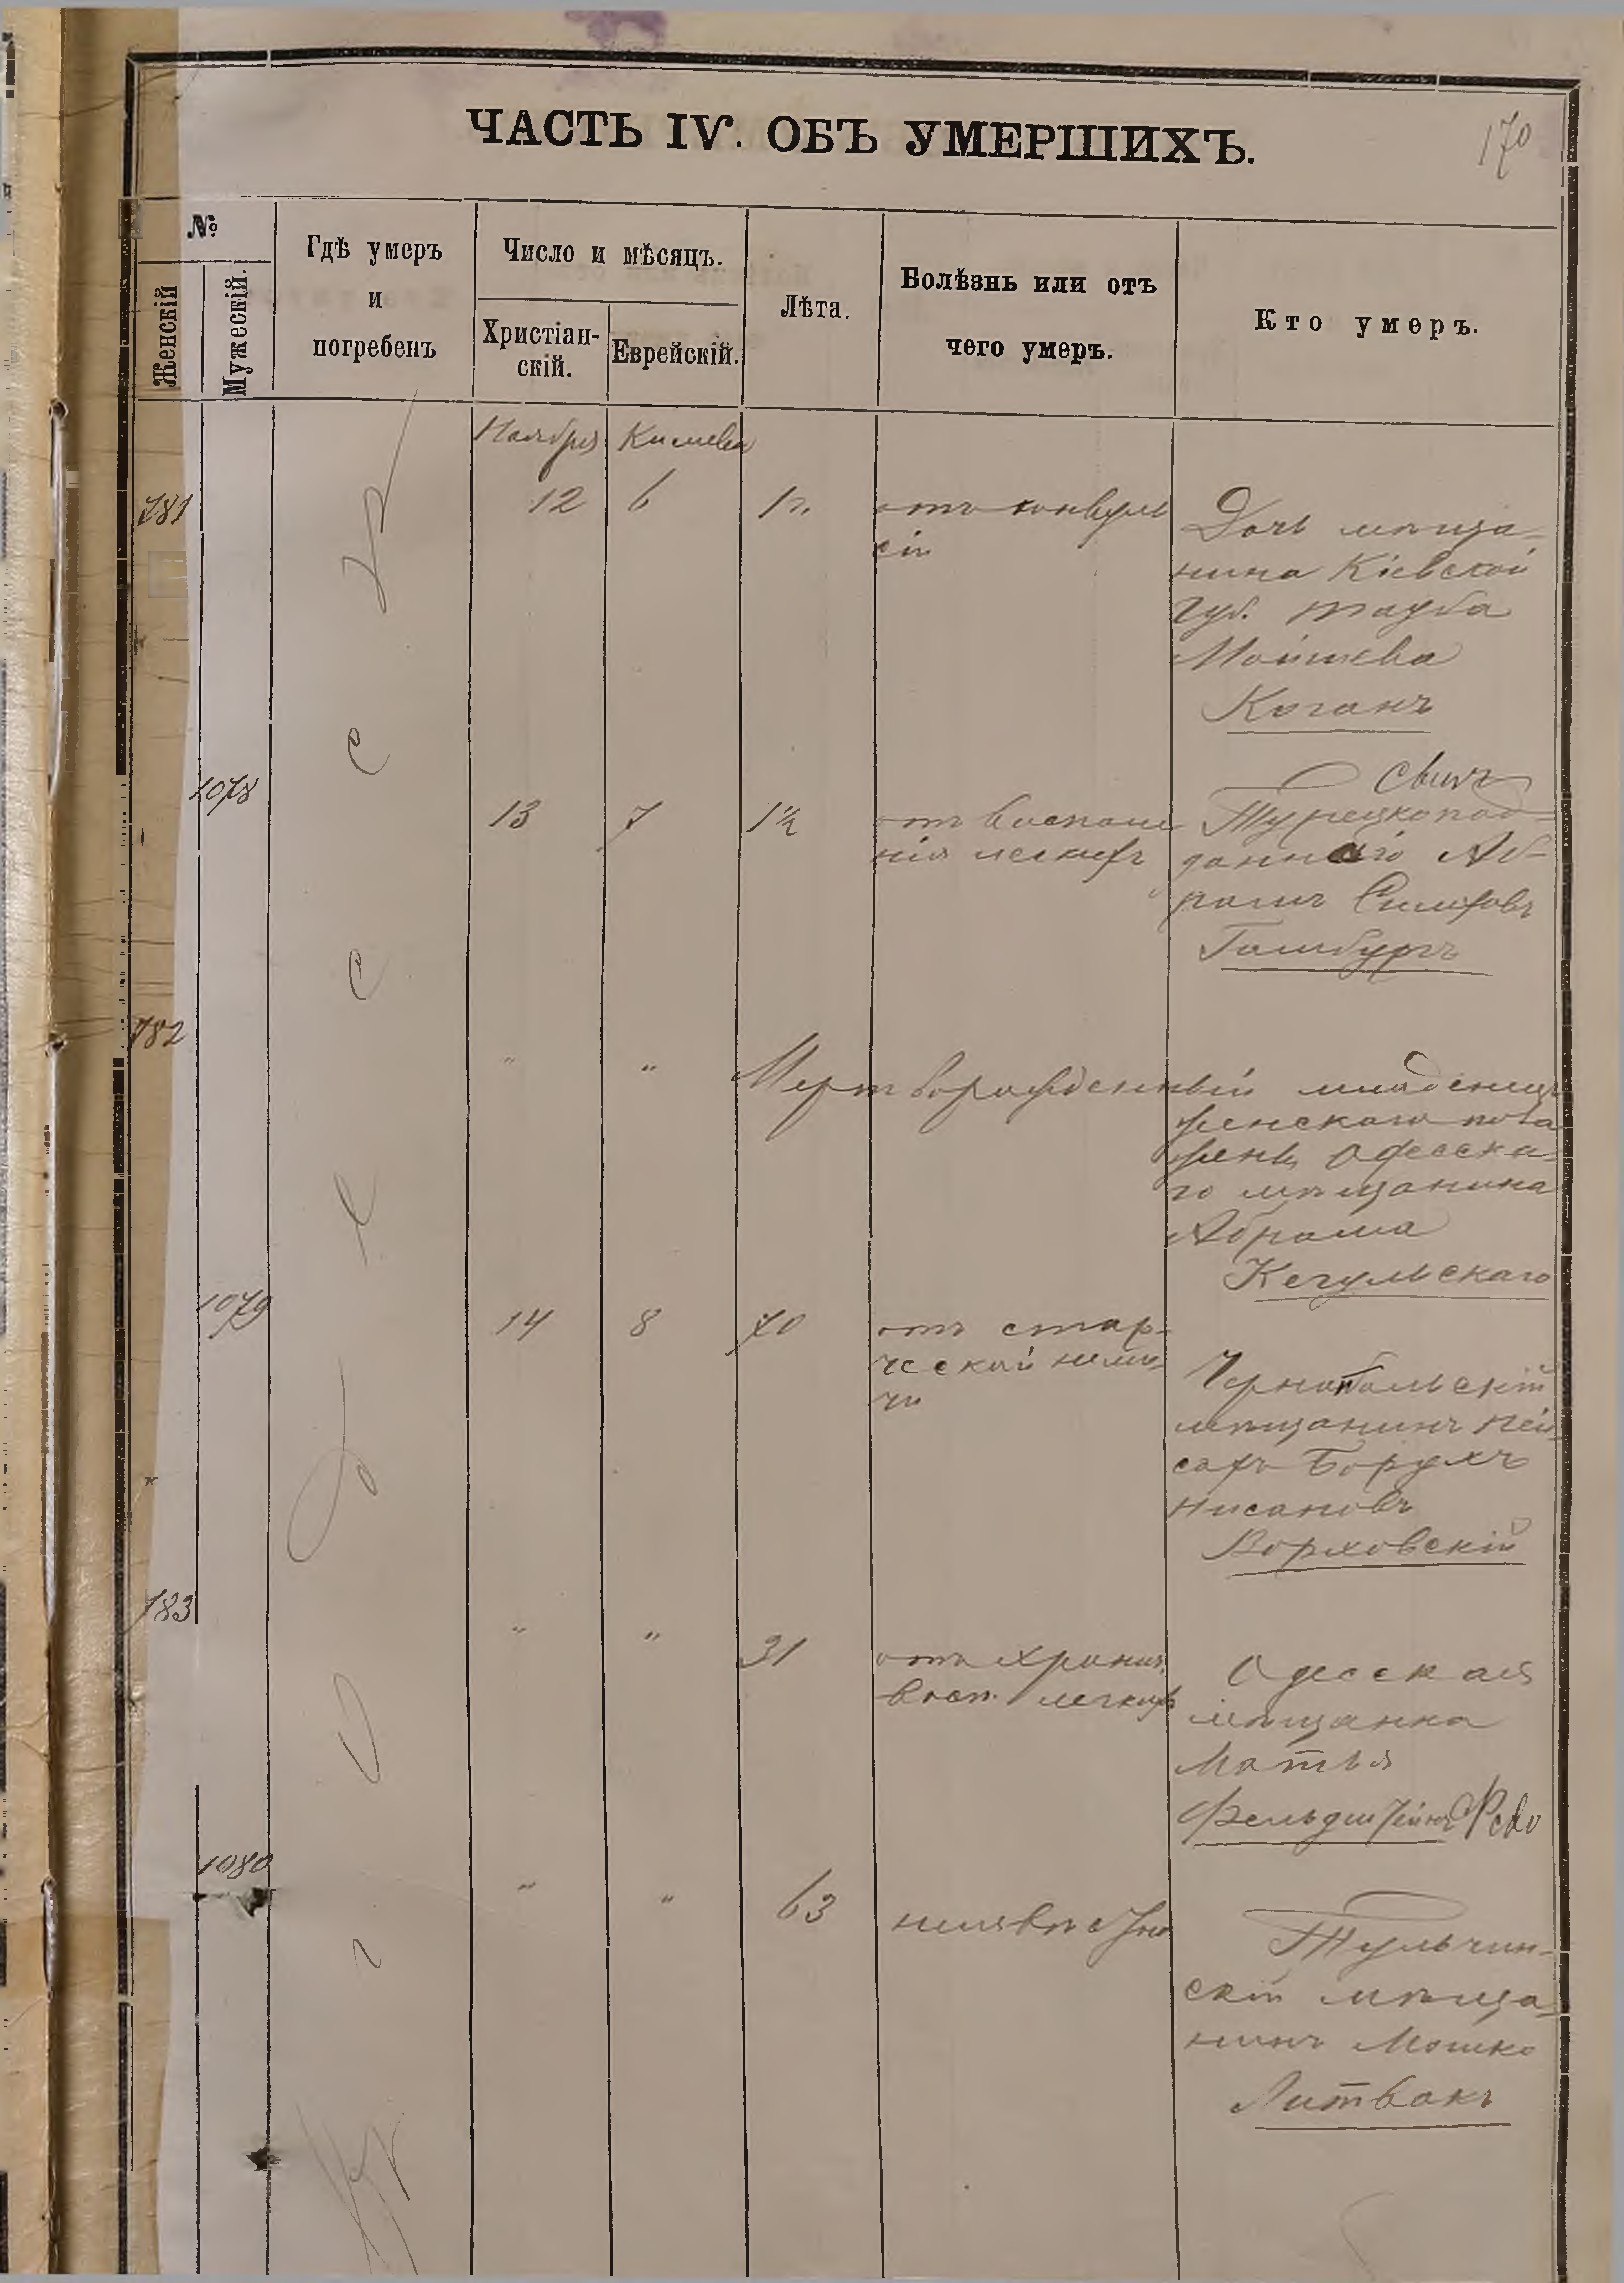 ЧАСТЬ IV. ОБЪ УМЕРШИХЪ.
170
№
Женскій
Мужескій.
Гдѣ умеръ
и
погребенъ
Число и мѣсяцъ.
Христіан-
скій.
Еврейскій.
Лѣта.
Болѣзнь или отъ
чего умеръ.
Кто умеръ.
Ноября Кислева
781 12 6 1 г. отъ конвуль
сій
Дочь мѣща-
нина Кіевской
губ. Тауба
Мошкева
Коганъ
1078 13 7 1½ отъ воспале
нія легкихъ
Сынъ
Турецкопод-
даннаго Аб-
рамъ
Гамбургъ
782 " " Мертворожденный младенецъ
женскаго пола
жены Одесска-
го мѣщанина
Абрама
Кегульскаго
1079 14 8 70 отъ стар-
ческой немо-
чи
Чернобыльскій
мѣщанинъ Пей-
сахъ Борухъ
Нисановъ
Ворховскій
783 " " 31 отъ хронич.
восп. легкихъ
Одесская
мѣщанка
Матья
1080 " " 63 неизвѣстно
Тульчин-
скій мѣща-
нинъ Мошко
Литвакъ
въ г. Одессѣ